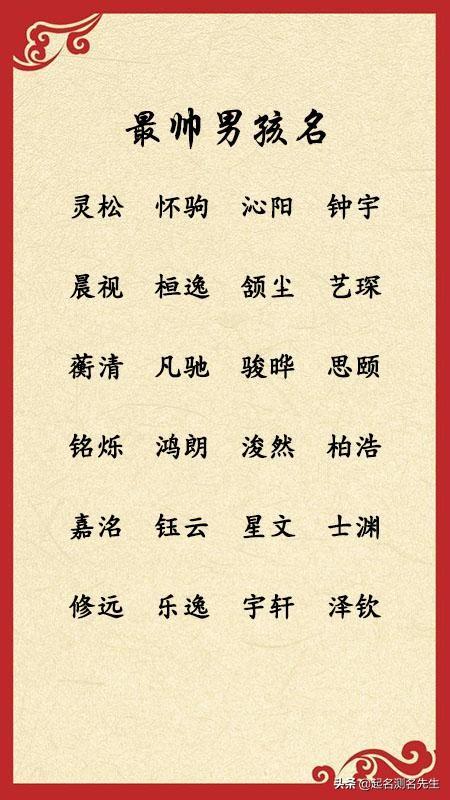 最帅男孩名
灵松 怀驹 沁阳 钟宇
晨视 桓逸 颔尘 艺琛
蘅清 凡驰 骏晔 思颐
铭烁 鸿朗 浚然 柏浩
嘉洺 钰云 星文 士渊
修远 乐逸 宇轩 泽钦
头条 @起名测名先生